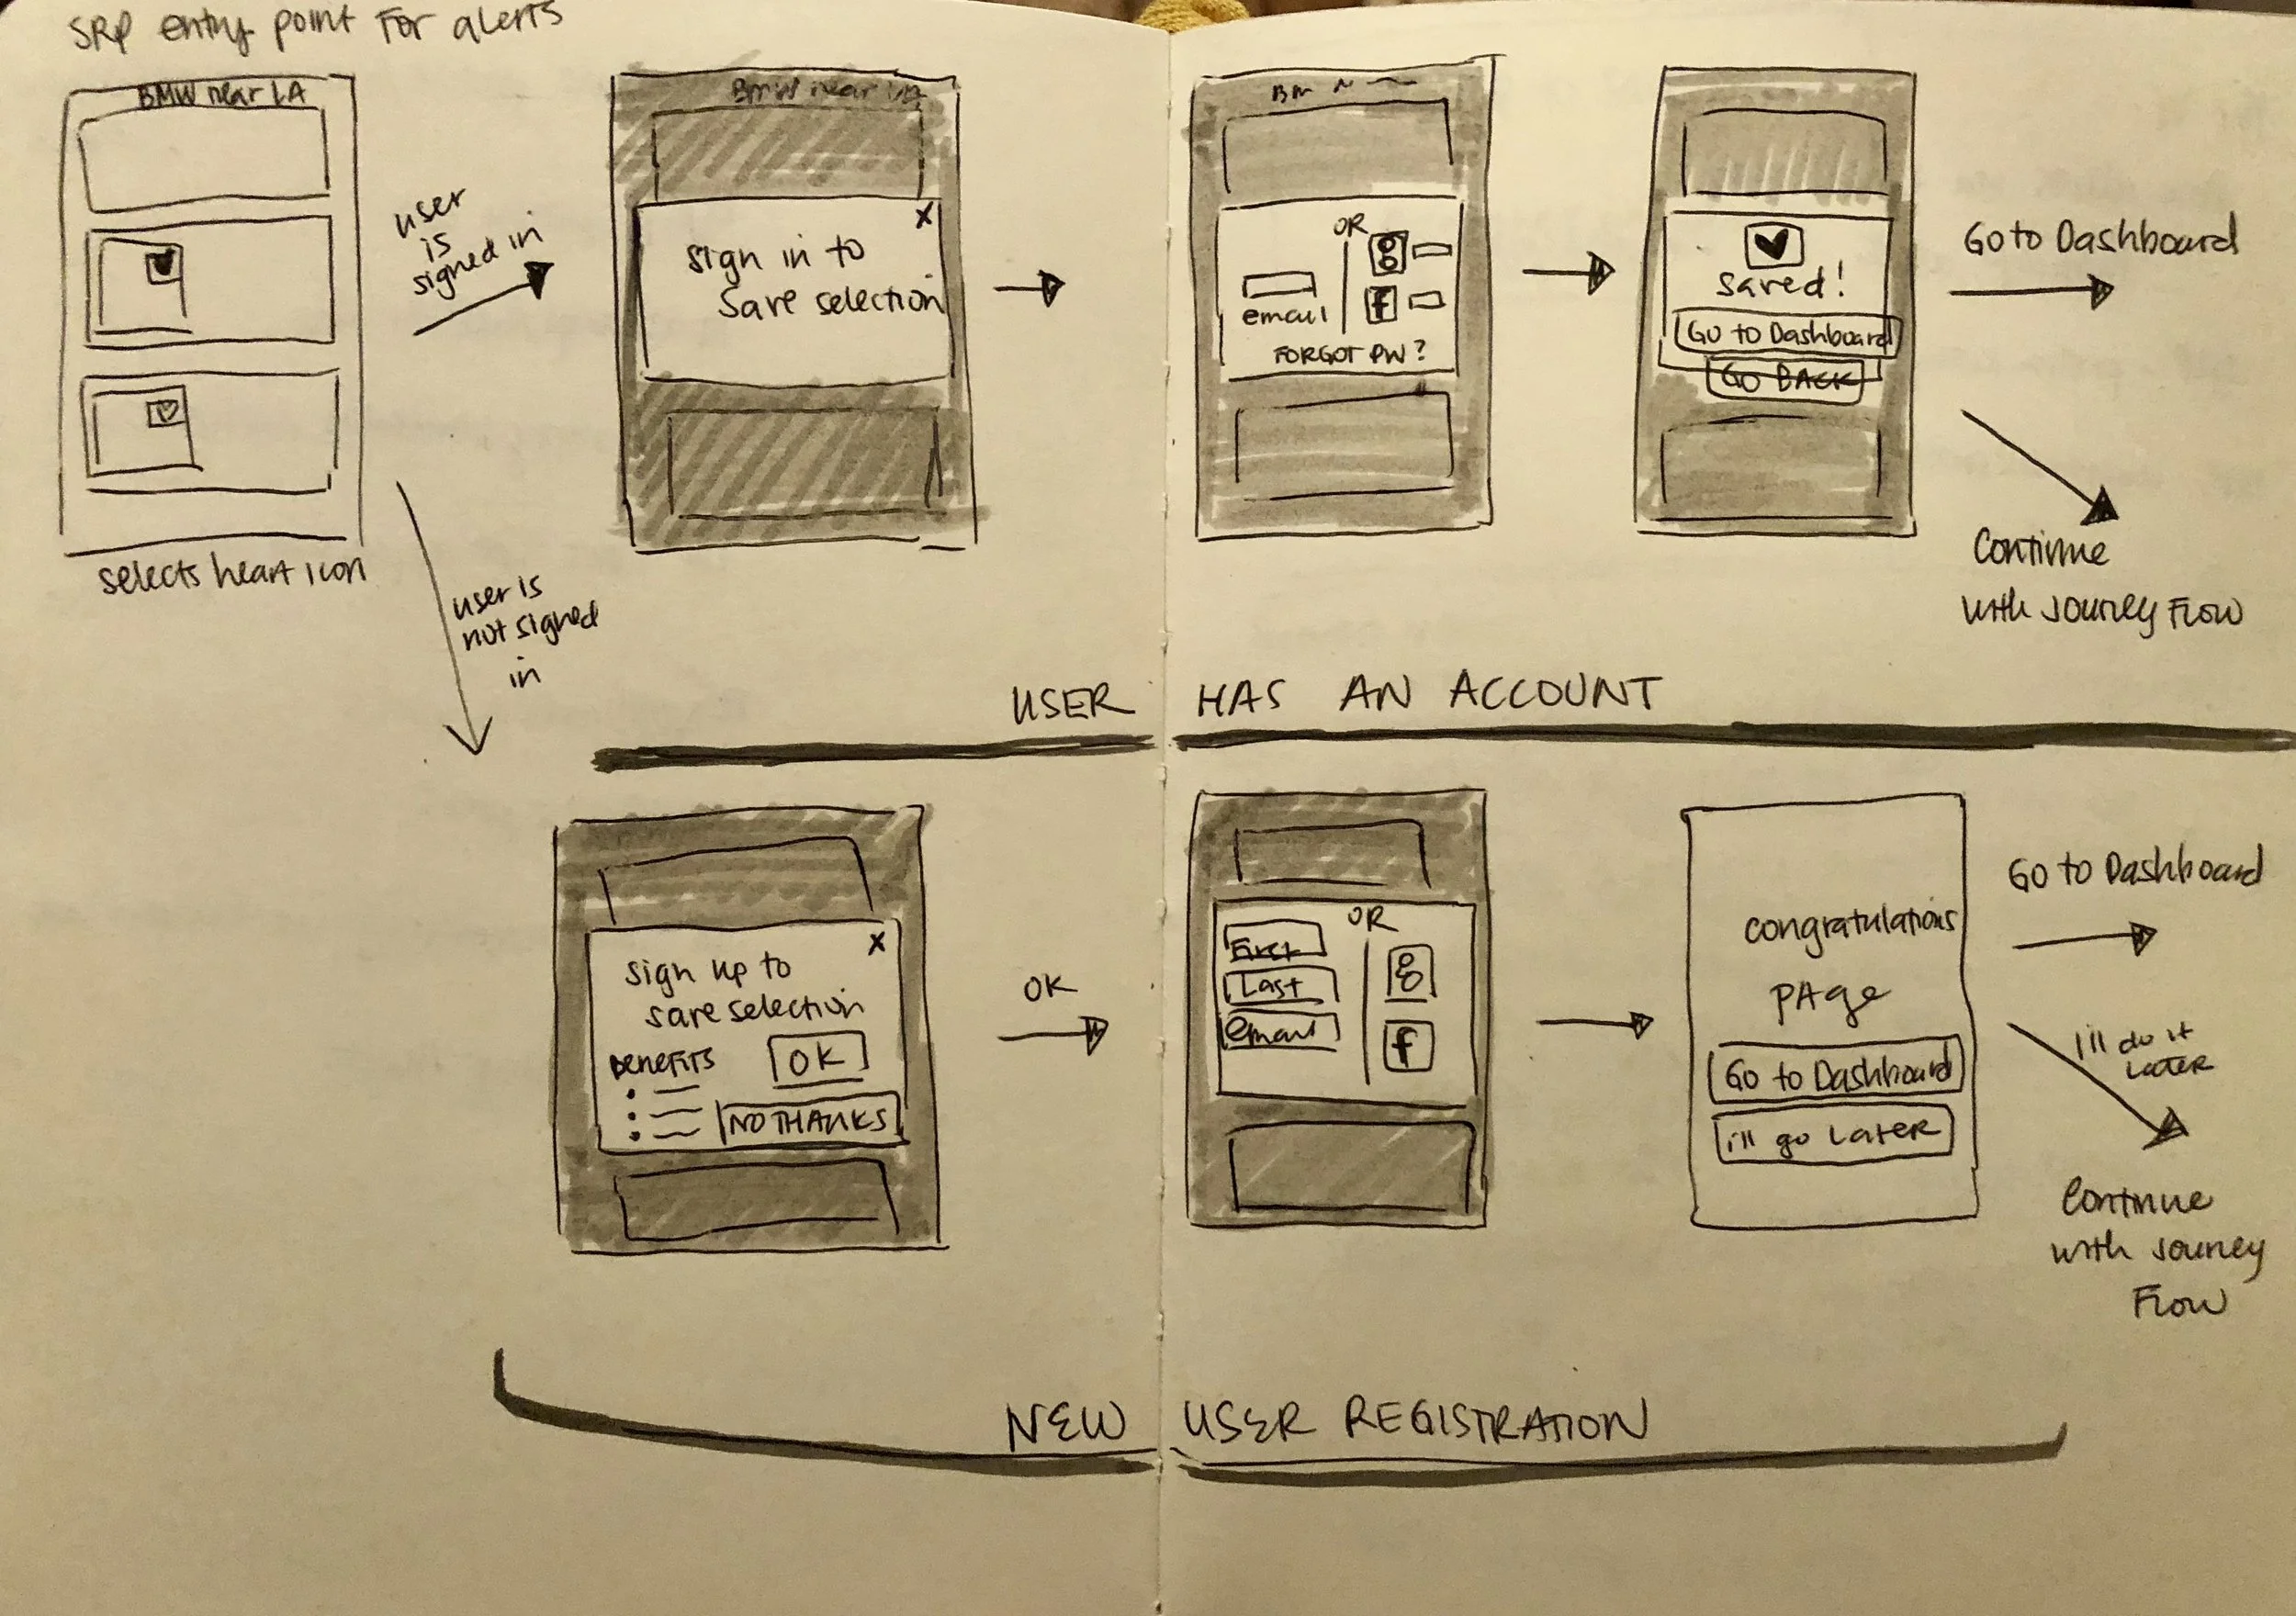 SRP entry point for alerts
BMW near LA
selects heart icon
user
is
signed in
BMW near LA
X
sign in to
save selection
OR
email
g
f
FORGOT PW?
saved!
Go to Dashboard
GO BACK
Go to Dashboard
Continue
with Jouney Flow
user is
not signed
in
USER HAS AN ACCOUNT
X
sign up to
save selection
Benefits
OK
NO THANKS
OK
OR
First
Last
email
g
f
congratulations
page
Go to Dashboard
i'll go Later
Go to Dashboard
I'll do it
Later
Continue
with Jouney
Flow
NEW USER REGISTRATION